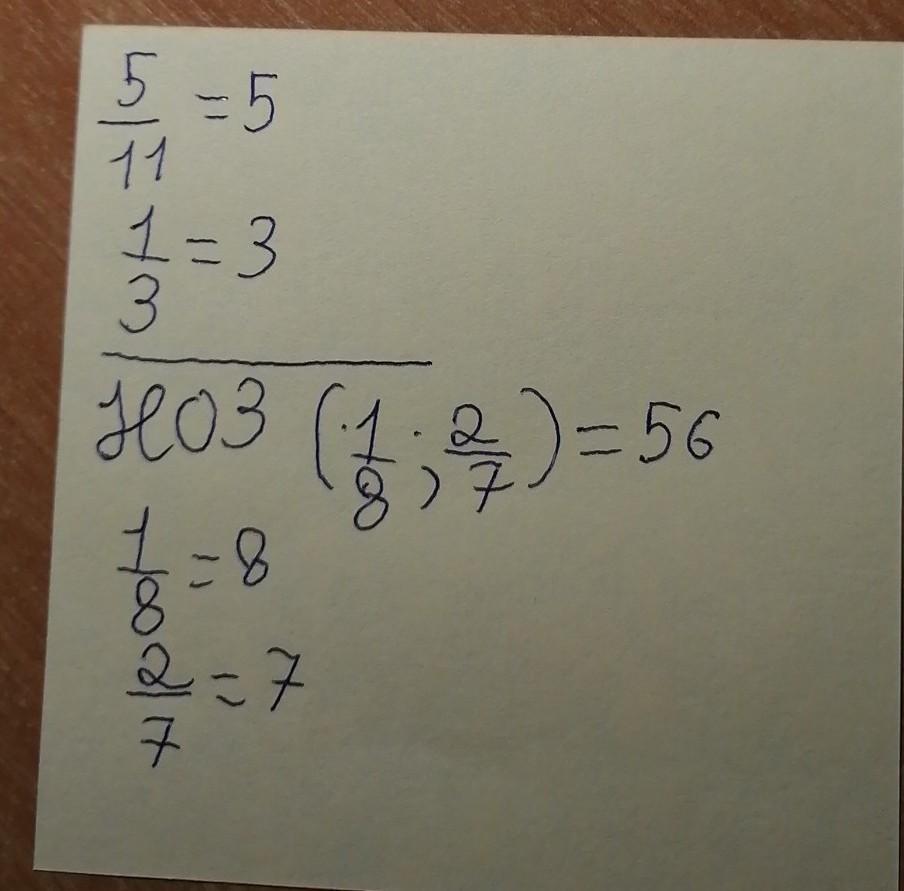 5/11 = 5
1/3 = 3
НОЗ (1/8; 2/7) = 56
1/8 = 8
2/7 = 7